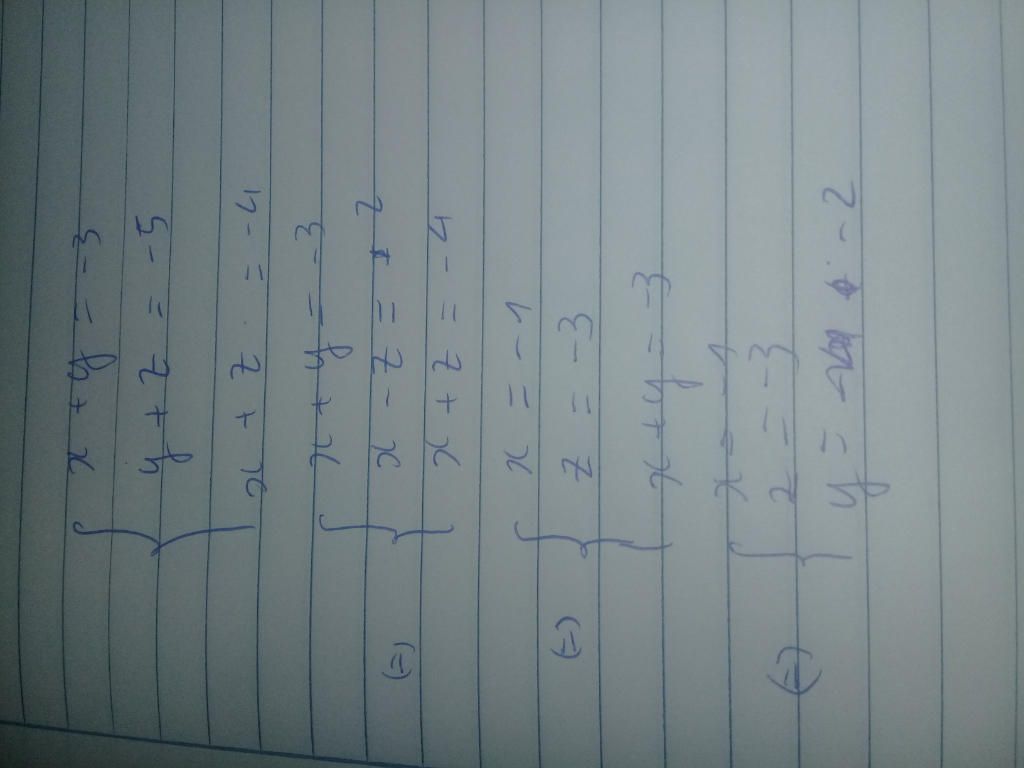 x + y = -3
y + z = -5
x + z = -4
x + y = -3
(=) x - z = 2
x + z = -4
x = -1
(=) z = -3
x + y = -3
x = -1
(=) z = -3
y = -2